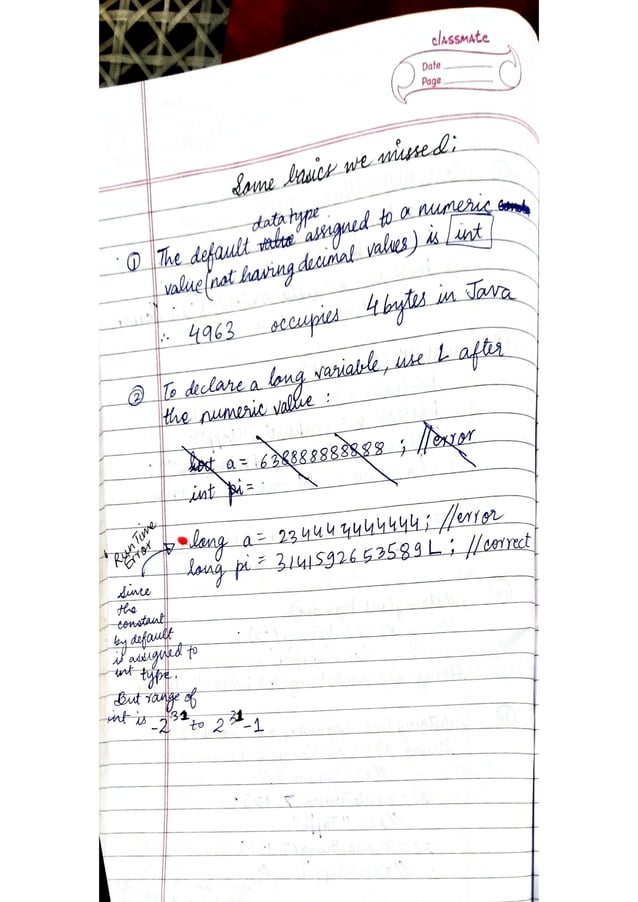 classmate
Date
Page
Some basics we missed:
datatype
① The default value assigned to a numeric
value (not having decimal values) is int
∴ 4963 occupies 4 bytes in Java
② To declare a long variable, use L after
the numeric value :
a = 638888888888 ; //error
int pi =
Run Time
Error
long a = 234444444444; //error
long pi = 3141592653589L; //correct
Since
the
constant
by default
is assigned to
int type.
But range of
int is -2^31 to 2^31-1